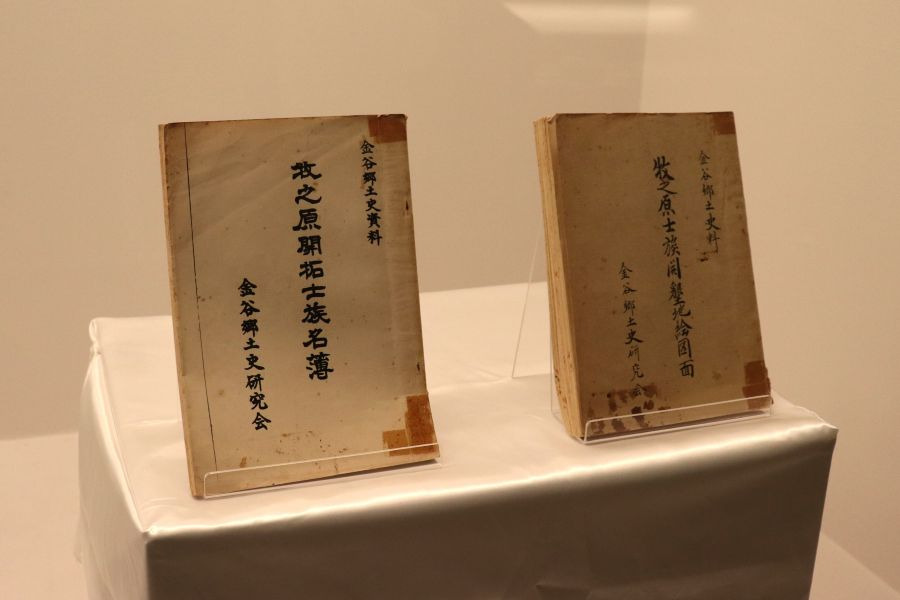 金谷郷土史資料
牧之原開拓士族名簿
金谷郷土史研究会
金谷郷土史料
牧之原士族開墾地絵図面
金谷郷土史研究会